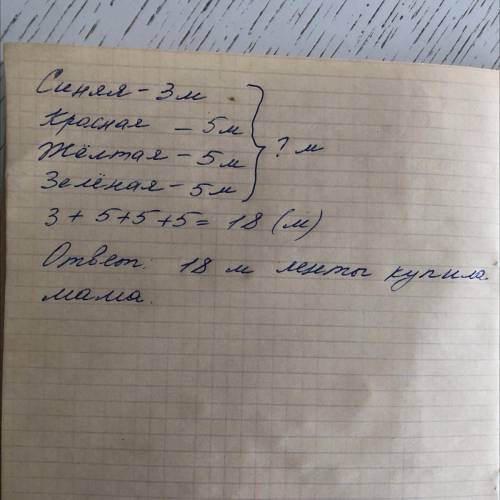 Синяя - 3 м
Красная - 5 м
Жёлтая - 5 м
Зелёная - 5 м
? м
3 + 5 + 5 + 5 = 18 (м)
Ответ: 18 м ленты купила
мама.